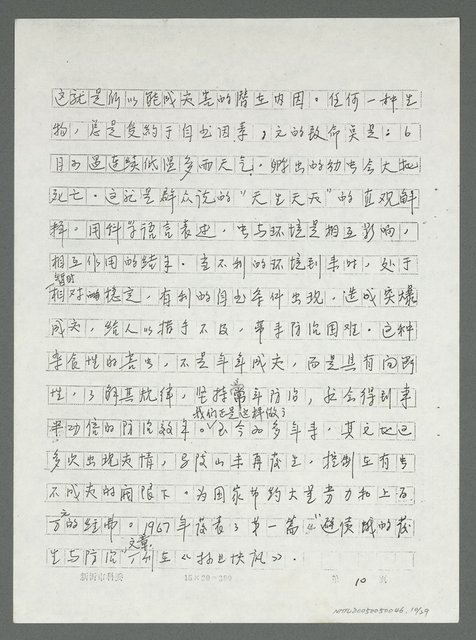 这就是所以能成灾害的潜在内因。任何一种生
物，总是受约于自然因素，它的致命莫是：6
月 遇连续低温多雨天气，孵出的幼虫会大批
死亡。这就是群众说的“天生天灭”的直观解
释。用科学语言表述，虫与环境是相互影响，
相互作用的结果。当不利的环境到来时，处于
暂时
相对 稳定，有利的自然条件出现，造成突爆
成灾，给人以措手不及，带来防治困难。这种
杂食性的害虫，不是年年成灾，而是具有间断
性，了解其规律，坚持常年防治，就会得到事
我们正是这样做了
半功倍的防治效果。至今20多年来，其它地区
多次出现灾情，马陵山未再发生，控制在有虫
不成灾的范围下。为国家节约大量劳力和上百
万元的经费。1967年发表了第一篇“ 的发
文章
生与防治” 刊在《 快讯》。
新沂市科委 15×20=300 第 10 页
NMTL20050050046. 10/39